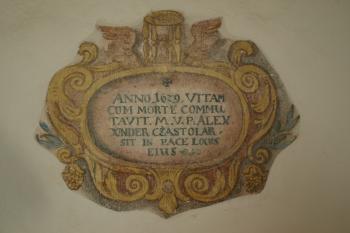 ANNO. 1629. VITAM
CUM MORTE COMMU
TAVIT. M. V. P. ALEX
XNDER CZASTOLAR.
SIT IN PACE LOCUS
EIUS